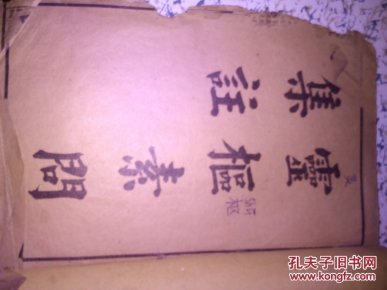 靈樞素問
集註
孔夫子旧书网
www.kongfz.com